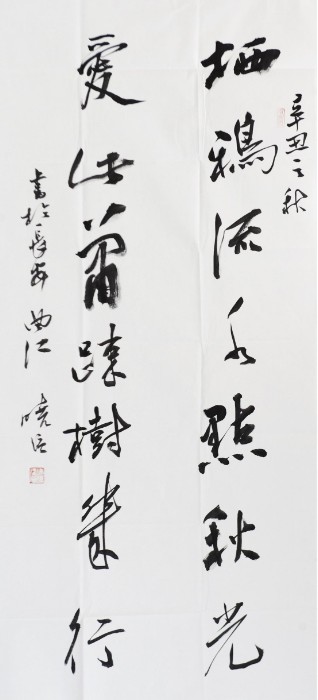 辛丑之秋
栖鴉流水點秋光
愛此蕭疎樹幾行
書於長安曲江 曉